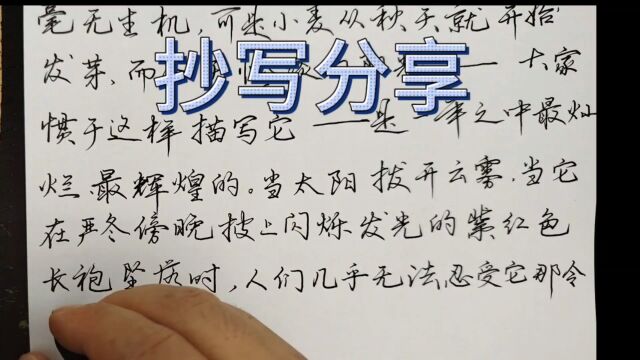 毫无生机，可是小麦从秋天就开始
抄写分享
发芽，而
— 大家
惯于这样描写它 —— 是一年之中最灿
烂、最辉煌的。当太阳拨开云雾，当它
在严冬傍晚披上闪烁发光的紫红色
长袍坠落时，人们几乎无法忍受它那令